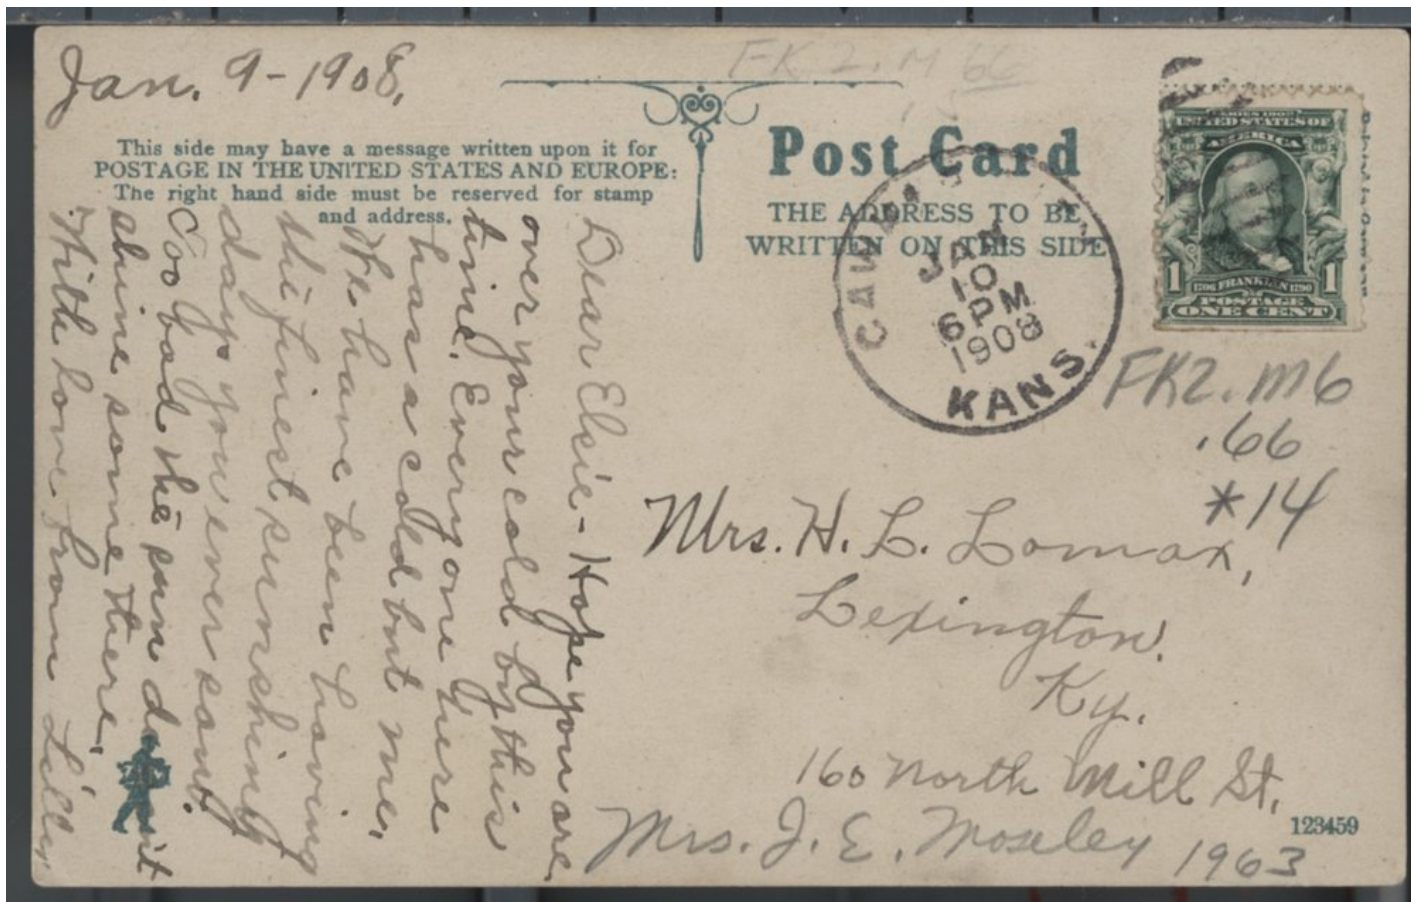 Jan. 9-1908.
FK 2. M 66
This side may have a message written upon it for
POSTAGE IN THE UNITED STATES AND EUROPE:
The right hand side must be reserved for stamp
and address.
Post Card
THE ADDRESS TO BE
WRITTEN ON THIS SIDE
KANS.
JAN
10
6PM
1908
SERIES 1902
UNITED STATES OF
AMERICA
1 1
1706 FRANKLIN 1790
POSTAGE
ONE CENT
FK2.M6
.66
*14
Dear Elsie - Hope you are
over your cold by this
time. Every one here
has a cold but me.
We have been having
the finest sunshiny
days you ever saw.
Too bad the sun don't
shine some there.
With love from Lillie
Mrs. H. L. Lomax,
Lexington.
Ky.
160 North Mill St.
Mrs. J. E. Moseley 1963
123459